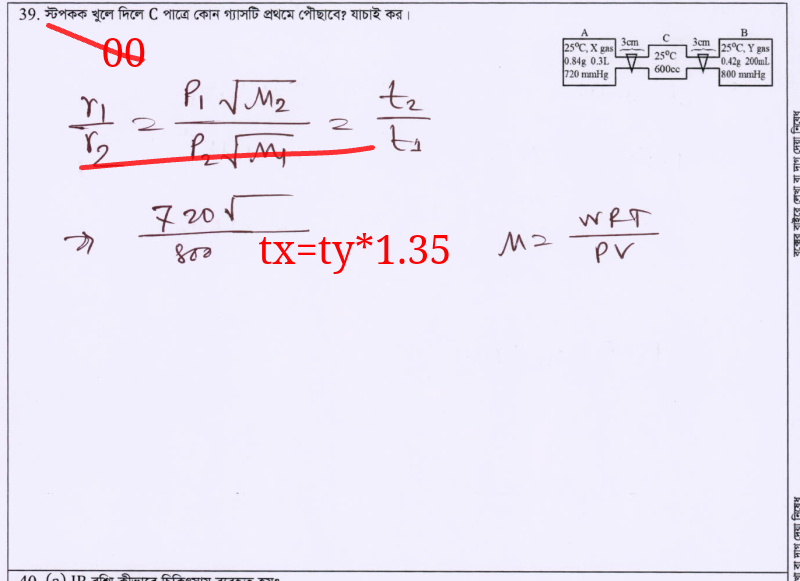 39. স্টপকক খুলে দিলে C পাত্রে কোন গ্যাসটি প্রথমে পৌছাবে? যাচাই কর।
A
25°C, X gas
0.84g 0.3L
720 mmHg
3cm
C
25°C
600cc
3cm
B
25°C, Y gas
0.42g 200mL
800 mmHg
00
r₁/r₂ = P₁√M₂ / P₂√M₁ = t₂/t₁
⇒ 720√ / ৪00
tx=ty*1.35
M = WRT / PV
বক্সের বাইরে লেখা বা দাগ দেয়া নিষেধ
বা দাগ দেয়া নিষেধ